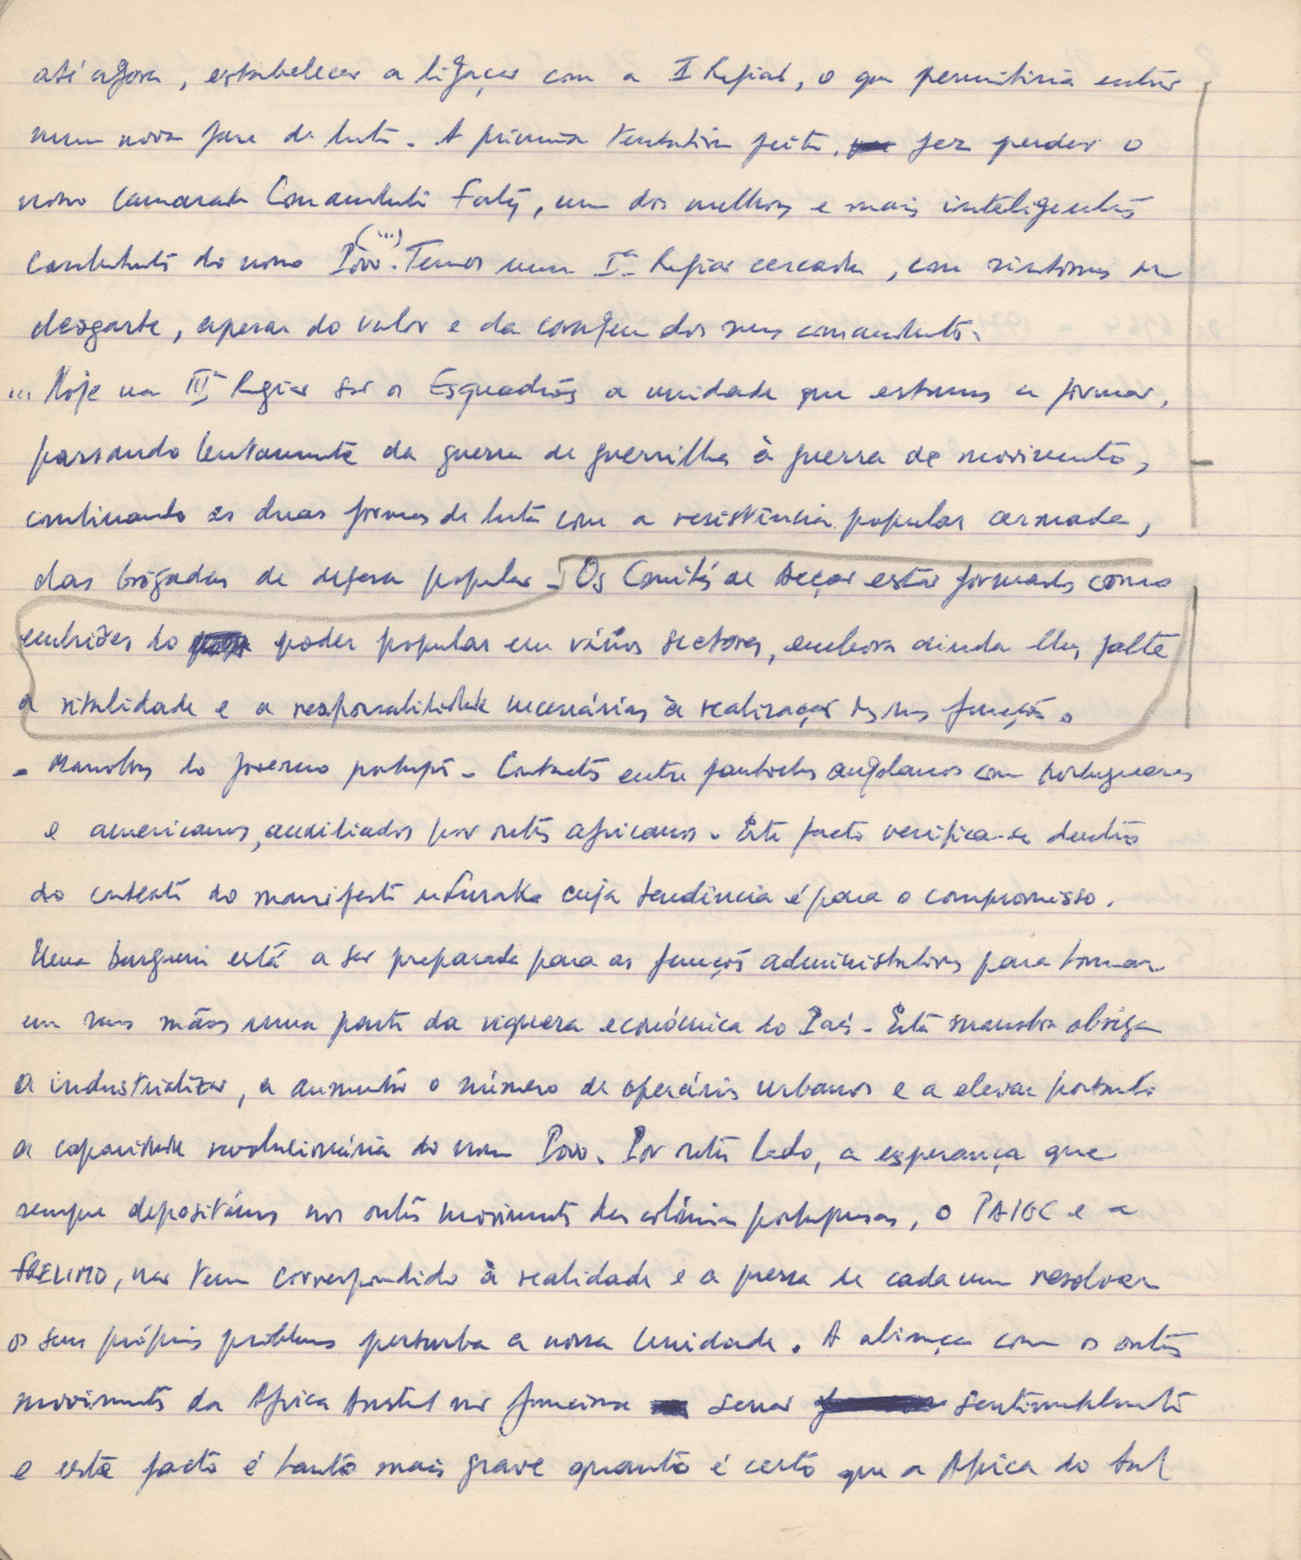 até agora, estabelecer a ligação com a I Região, o que permitiria entrar
numa nova fase da luta. A primeira tentativa feita, fez perder o
nosso camarada Comandante                 , um dos melhores e mais inteligentes
(...)
combatentes do nosso Povo. Temos uma Iª Região cercada, com sintomas de
desgaste, apesar do valor e da coragem dos seus comandantes.
... Hoje na III Região são os Esquadrões a unidade que estamos a formar,
passando lentamente da guerra de guerrilha à guerra de movimento,
combinando as duas formas de luta com a resistência popular armada,
das brigadas de defesa popular. Os Comités de Acção estão formados como
embriões do poder popular em vários sectores, embora ainda lhes falte
a vitalidade e a responsabilidade necessárias à realização das suas funções.
- Manobras do governo português - Contactos entre fantoches angolanos com portugueses
e americanos, auxiliados por outros africanos. Este facto verifica-se dentro
do contexto do manifesto de Lusaka cuja tendência é para o compromisso.
Uma burguesia está a ser preparada para as funções administrativas para tomar
em suas mãos uma parte da riqueza económica do País. Esta manobra obriga
a industrializar, a aumentar o número de operários urbanos e a elevar portanto
a capacidade revolucionária do nosso Povo. Por outro lado, a esperança que
sempre depositámos nos outros movimentos das colónias portuguesas, o PAIGC e a
FRELIMO, não tem correspondido à realidade e a pressa de cada um resolver
os seus próprios problemas perturba a nossa Unidade. A aliança com os outros
movimentos da Africa Austral não funciona senão sentimentalmente
e este facto é tanto mais grave quanto é certo que a Africa do Sul